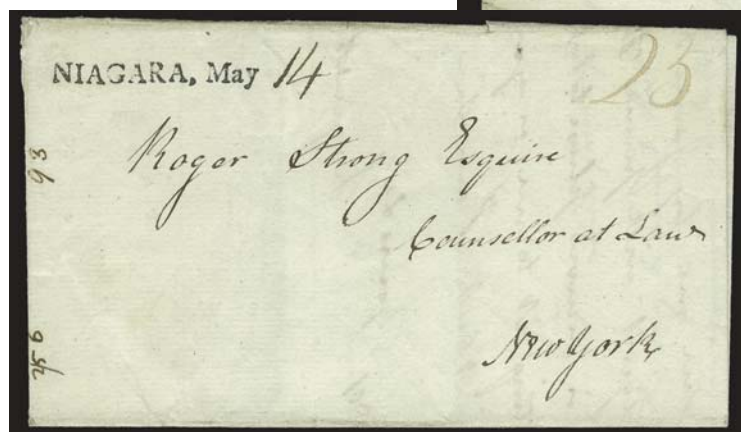 NIAGARA, May 14
25
Roger Strong Esquire
Counsellor at Law
New York
93